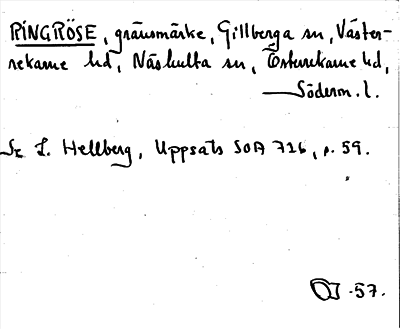 RINGRÖSE, gränsmärke, Gillberga sn, Väster-
rekarne hd, Näshulta sn, Österrekarne hd,
Söderm. l.
Se L. Hellberg, Uppsats SOA 726, p. 59.
-57.